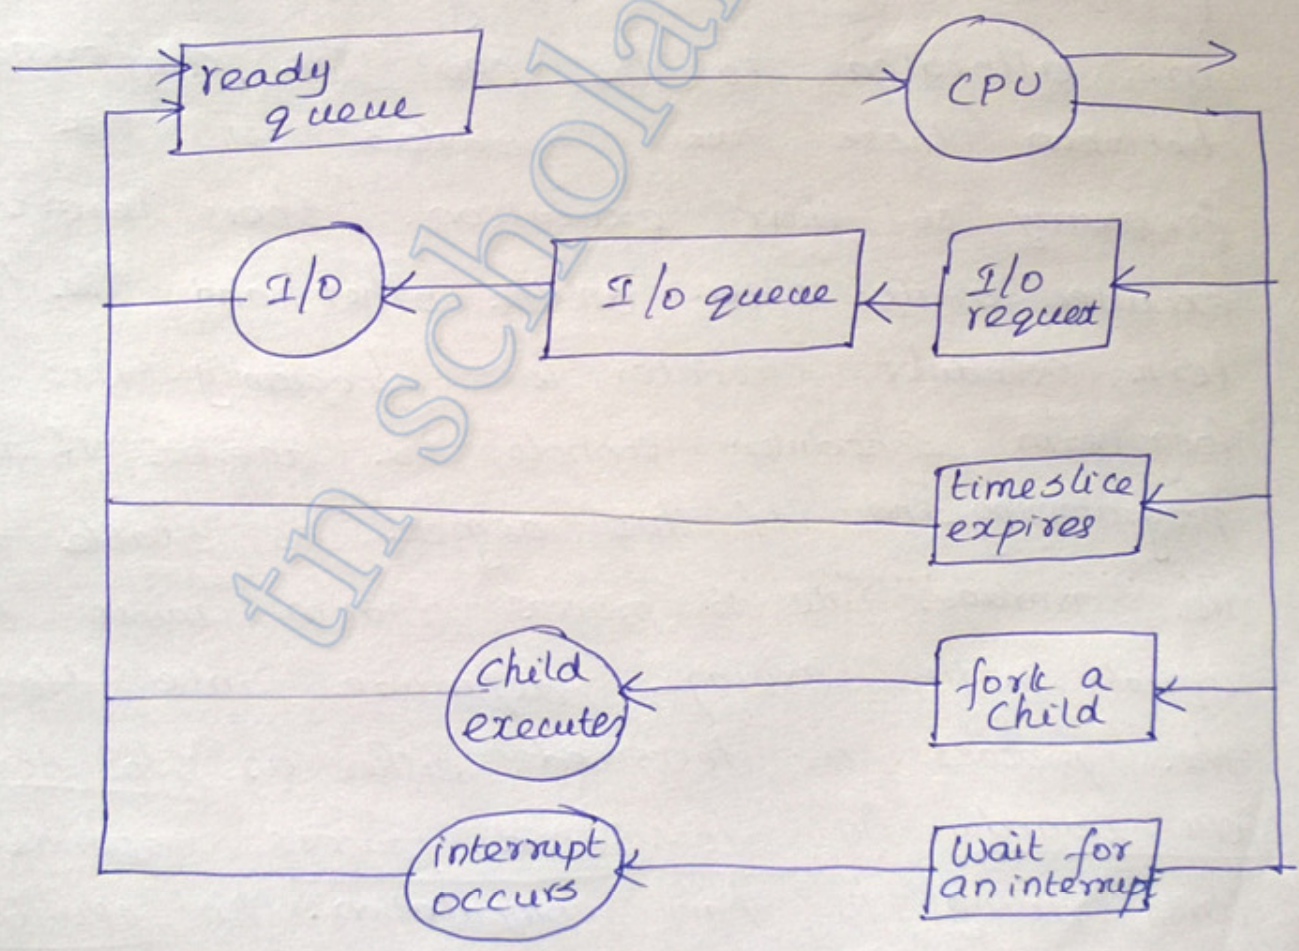 ready
queue
CPU
I/O
I/O queue
I/O
request
timeslice
expires
Child
executes
fork a
Child
interrupt
occurs
Wait for
an interrupt
tn schola